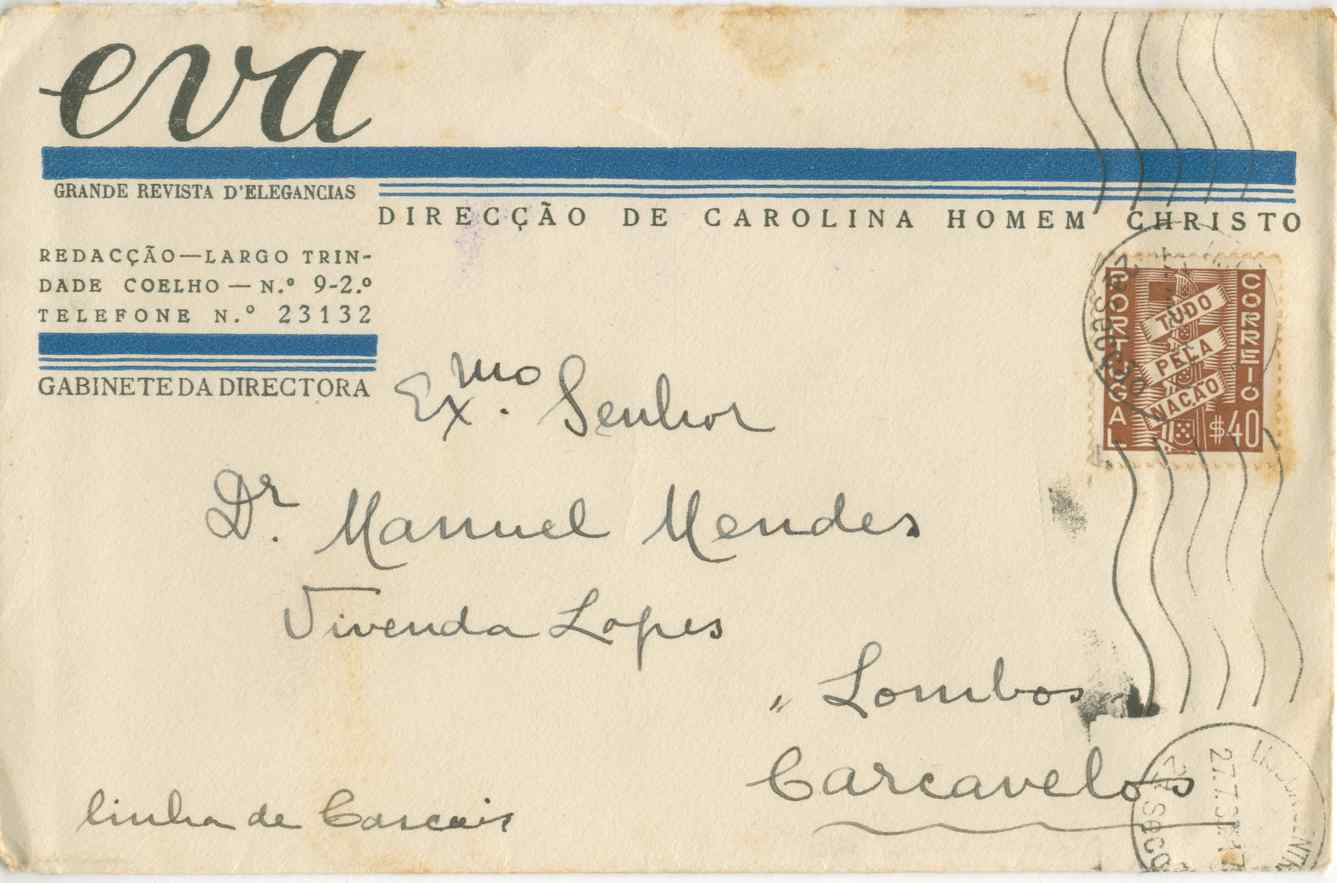 eva
GRANDE REVISTA D'ELEGANCIAS
DIRECÇÃO DE CAROLINA HOMEM CHRISTO
REDACÇÃO—LARGO TRIN-
DADE COELHO — N.º 9-2.º
TELEFONE N.º 23132
GABINETE DA DIRECTORA
PORTUGAL
CORREIO
TUDO
PELA
NAÇÃO
$40
Exmo. Senhor
Dr. Manuel Mendes
Vivenda Lopes
" Lombos
Carcavelos
linha de Cascais
27.7.3